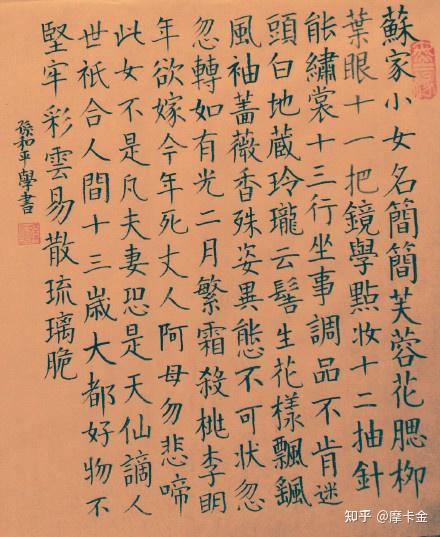 蘇家小女名簡簡芙蓉花腮柳
葉眼十一把鏡學點妝十二抽針
能繡裳十三行坐事調品不肯迷
頭白地蔵玲瓏云髻生花樣飄颻
風袖薔薇香殊姿異態不可狀忽
忽轉如有光二月繁霜殺桃李明
年欲嫁今年死丈人阿母勿悲啼
此女不是凡夫妻恐是天仙謫人
世祇合人間十三歲大都好物不
堅牢彩雲易散琉璃脆
孫和平學書
知乎 @摩卡金